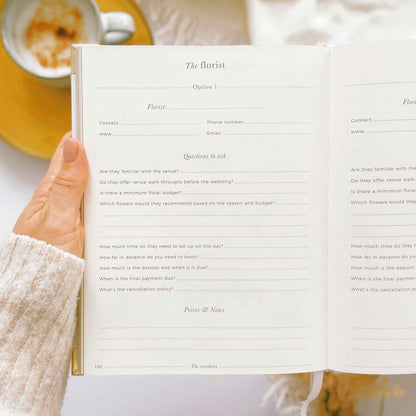 The florist
Option 1
Florist:
Contact: Phone number:
www. Email:
Questions to ask
Are they familiar with the venue?
Do they offer venue walk throughs before the wedding?
Is there a minimum floral budget?
Which flowers would they recommend based on the season and budget?
How much time do they need to set up on the day?
How far in advance do you need to book?
How much is the deposit and when is it due?
When is the final payment due?
What's the cancellation policy?
Prices & Notes
132
The vendors
Flori
Contact:
www.
Are they familiar with the
Do they offer venue walk
Is there a minimum floral
Which flowers would they
How much time do they
How far in advance do yo
How much is the deposit
When is the final paymen
What's the cancellation p